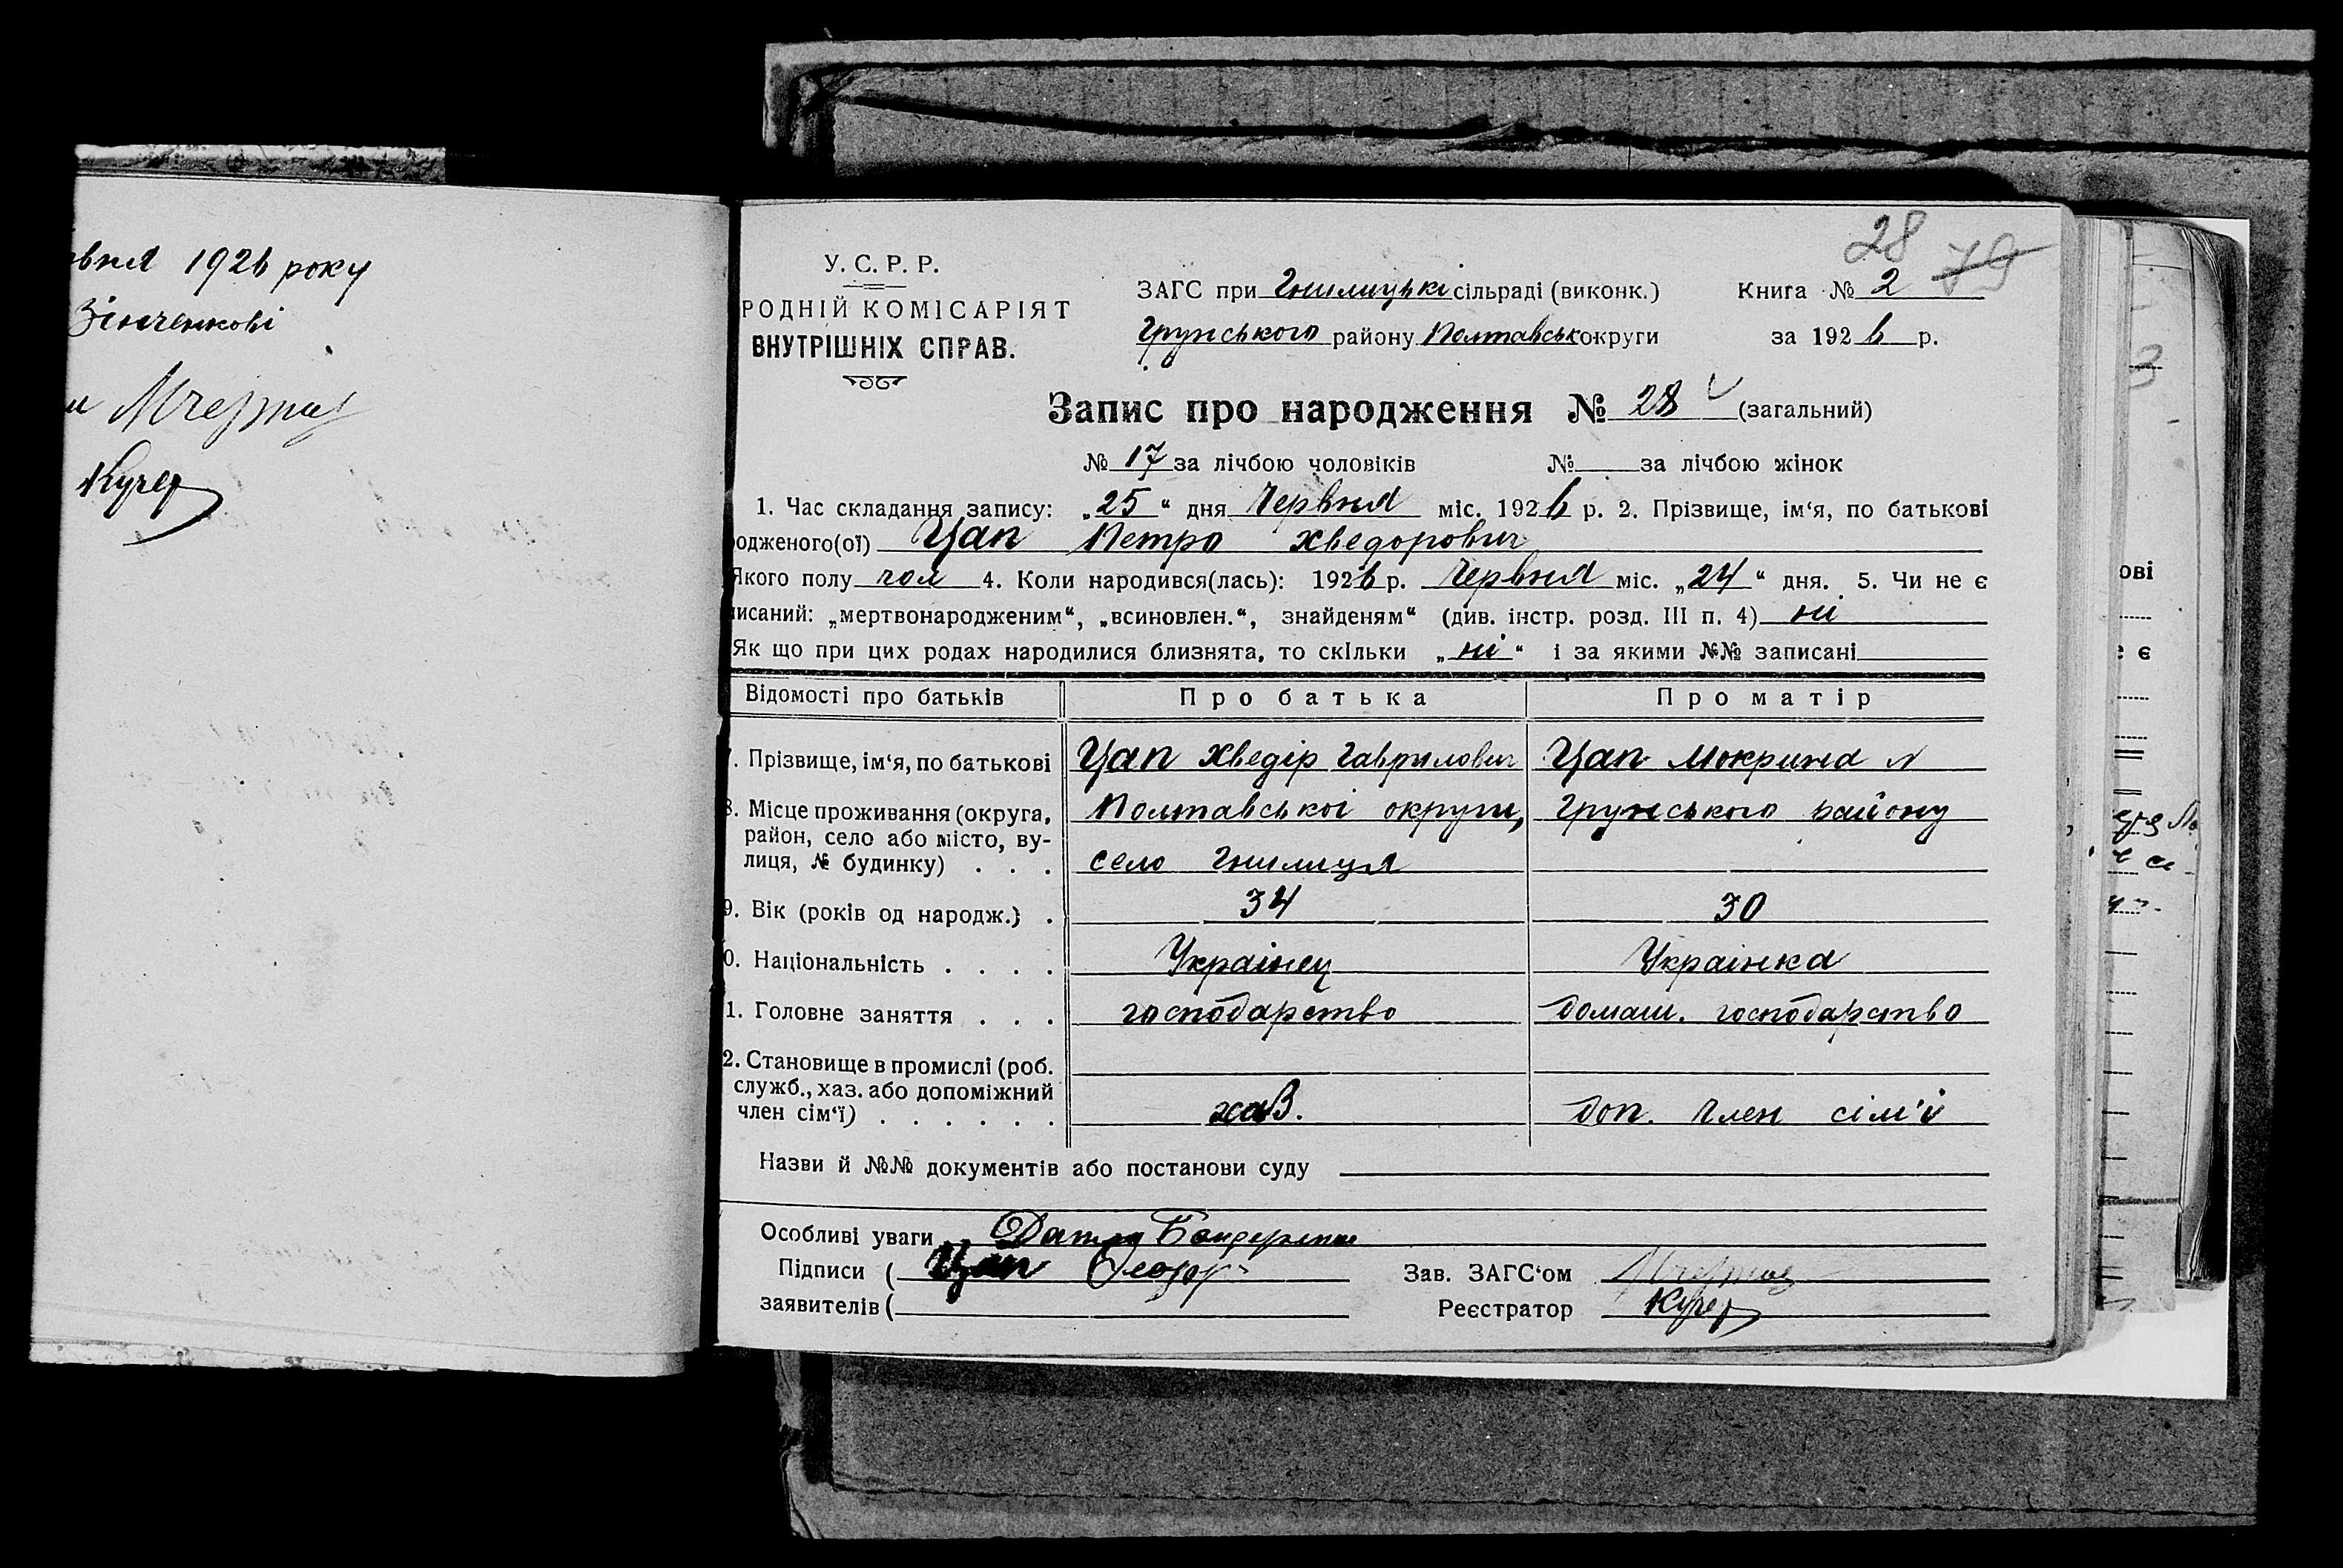 1926 року
Зінченкові
Кучер
28 79
У. С. Р. Р.
РОДНІЙ КОМІСАРІЯТ
ВНУТРІШНІХ СПРАВ.
ЗАГС при Гнилицькі сільраді (виконк.) Книга № 2
Грунського району Полтавськ округи за 1926 р.
Запис про народження № 28 (загальний)
№ 17 за лічбою чоловіків № за лічбою жінок
1. Час складання запису: „25“ дня Червня міс. 1926 р. 2. Прізвище, ім‘я, по батькові
одженого(ої) Цап Петро Хведорович
Якого полу чол 4. Коли народився(лась): 1926 р. Червня міс. „24“ дня. 5. Чи не є
писаний: „мертвонародженим“, „всиновлен.“, знайденям“ (див. інстр. розд. III п. 4) ні
Як що при цих родах народилися близнята, то скільки „ні“ і за якими №№ записані
Відомості про батьків Про батька Про матір
7. Прізвище, ім‘я, по батькові Цап Хведір Гаврилович Цап Мокрина
8. Місце проживання (округа, Полтавської округи, Грунського району
район, село або місто, ву-
лиця, № будинку) . . . село Гнилиця
9. Вік (років од народж.) . 34 30
0. Національність . . . . Українец Українка
1. Головне заняття . . . господарство домаш. господарство
2. Становище в промислі (роб.
служб., хаз. або допоміжний
член сім‘ї) . . . . . . хаз. доп. член сім'ї
Назви й №№ документів або постанови суду
Особливі уваги
Підписи ( Цап Зав. ЗАГС‘ом
заявителів ( Реєстратор Кучер
ові
є